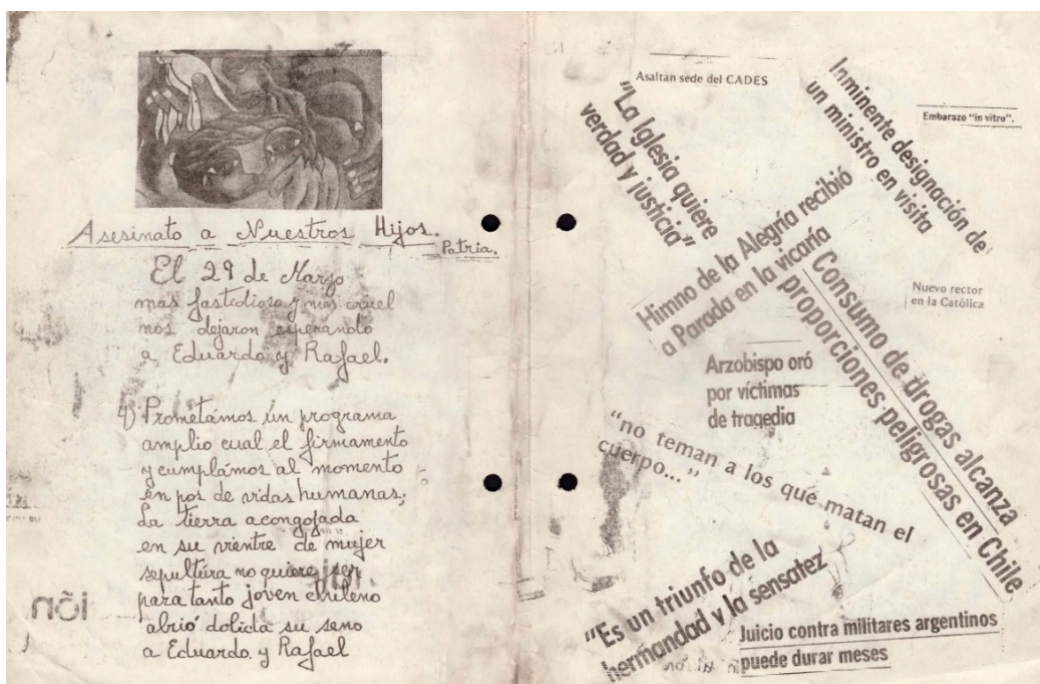 Asesinato a Nuestros Hijos.
Patria.
El 29 de Marzo
mas fastedioso y mas cruel
nos dejaron esperando
a Eduardo y Rafael.
4) Prometámos un programa
amplio cual el firmamento
y cumplámos al momento
en pos de vidas humanas;
La tierra acongojada
en su vientre de mujer
sepultura no quiere ser
para tanto joven chileno
abrió dolida su seno
a Eduardo y Rafael
Asaltan sede del CADES
"La Iglesia quiere
verdad y justicia"
Inminente designación de
un ministro en visita
Embarazo "in vitro".
Himno de la Alegría recibió
a Parada en la vicaría
Consumo de drogas alcanza
proporciones peligrosas en Chile
Nuevo rector
en la Católica
Arzobispo oró
por víctimas
de tragedia
"no teman a los que matan el
cuerpo..."
"Es un triunfo de la
hermandad y la sensatez
Juicio contra militares argentinos
puede durar meses